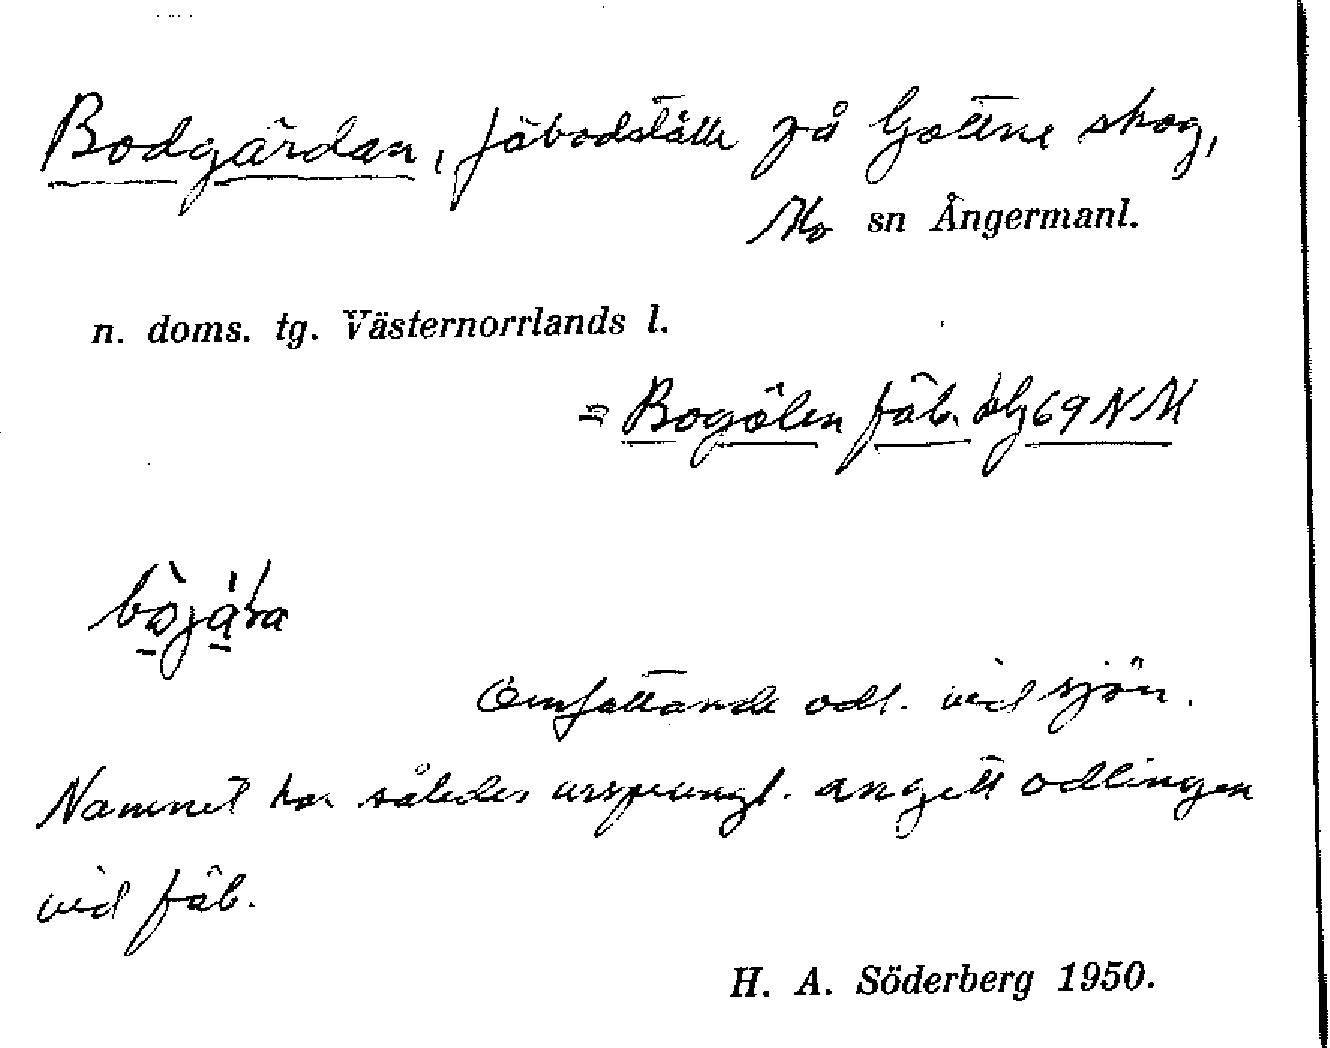 Bodgärdan, fäbodställe på Gottne skog,
Mo sn Ångermanl.
n. doms. tg. Västernorrlands l.
= Bogölen fäb. blj 69 NM
Omfattande odl. vid sjön.
Namnet har således ursprungl. angett odlingen
vid fäb.
H. A. Söderberg 1950.